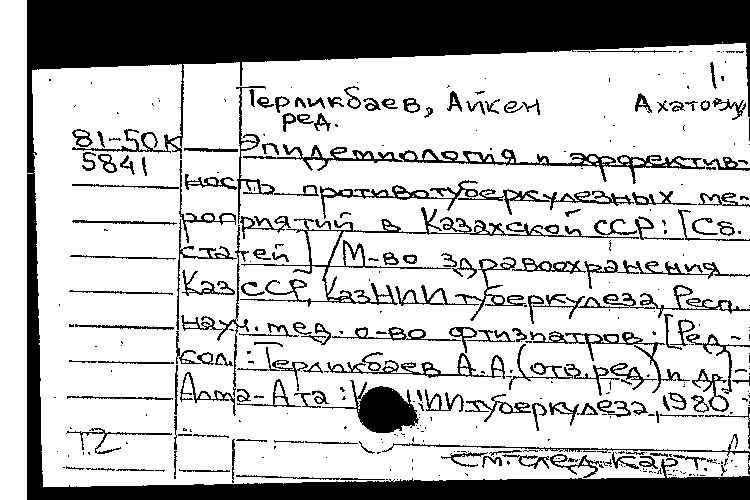 1.
Терликбаев, Айкен Ахатович
ред.
81-50К Эпидемиология и эффектив-
5841
ность противотуберкулезных ме-
роприятий в Казахской ССР: [Сб.
статей] / М-во здравоохранения
КазССР, КазНИИ туберкулеза, Респ.
науч. мед. о-во фтизиатров; [Ред-
кол.: Терликбаев А.А. (отв. ред.) и др.] -
Алма-Ата: НИИ туберкулеза, 1980.
Т.2
См. след. карт.